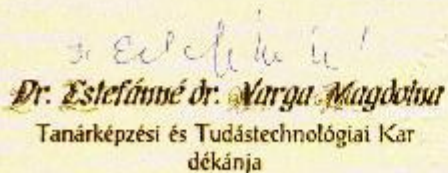 Dr. Estefánné dr. Varga Magdolna
Tanárképzési és Tudástechnológiai Kar
dékánja